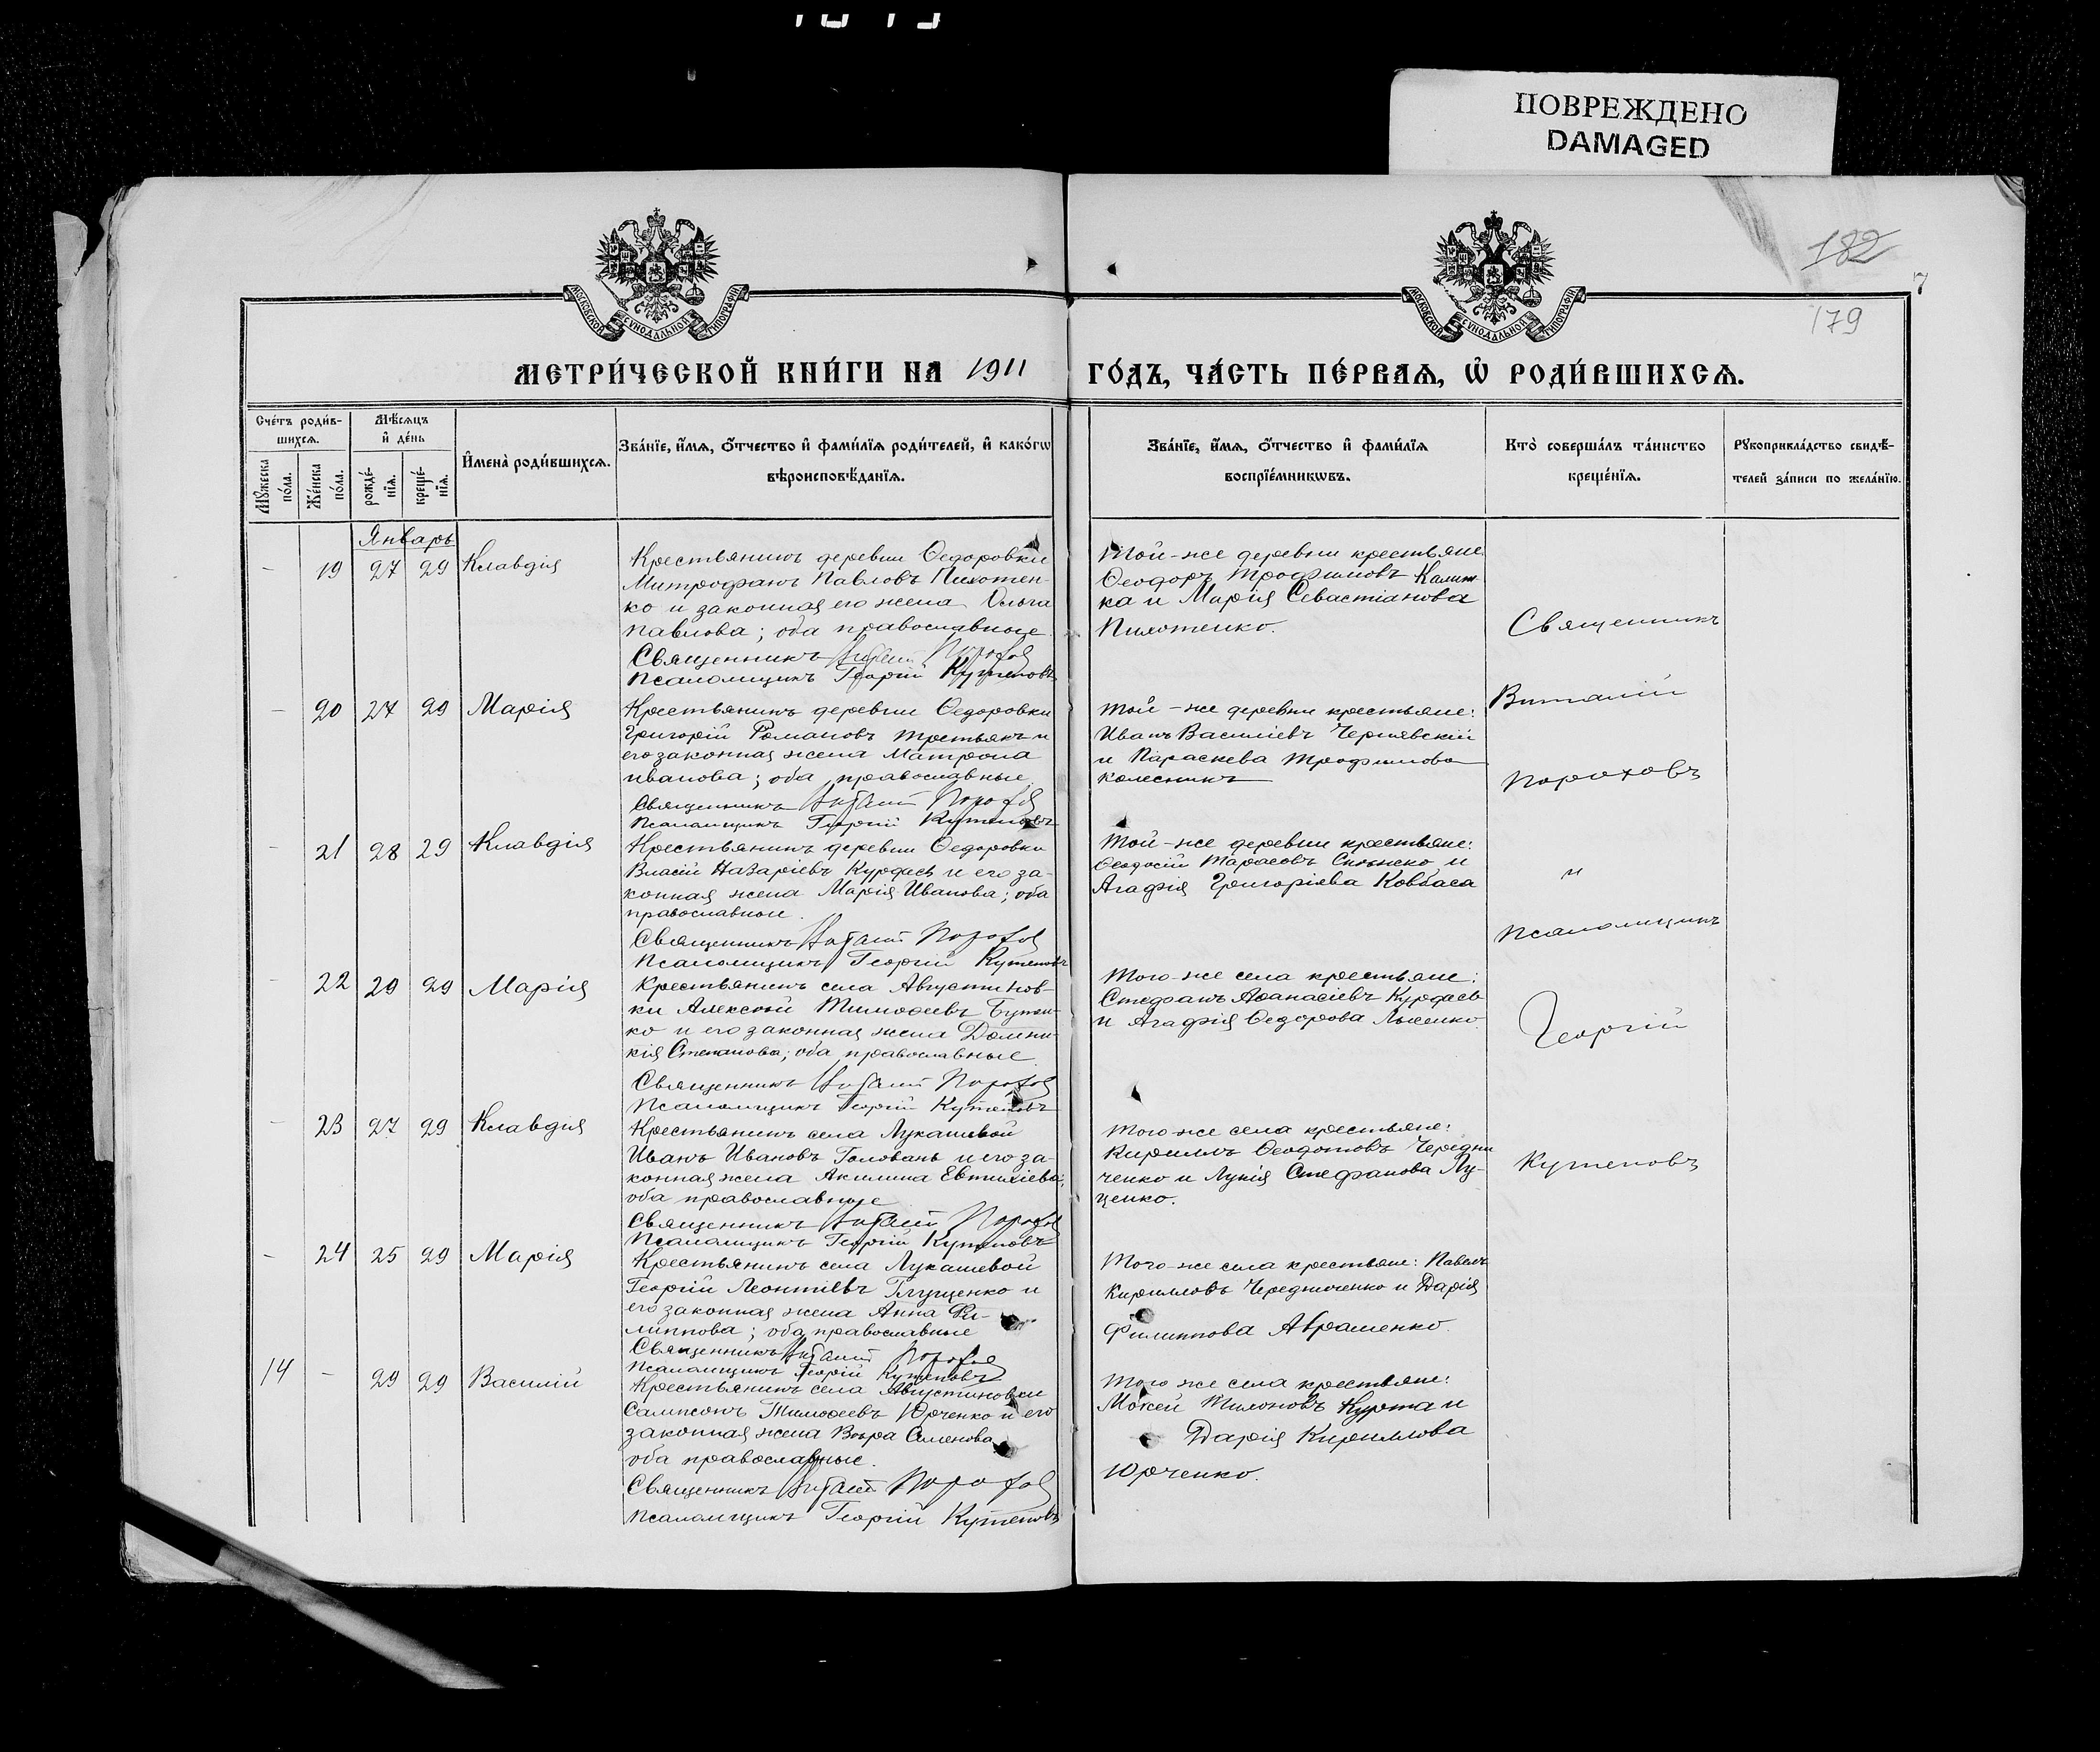 ПОВРЕЖДЕНО
DAMAGED
182
7
179
МОСКОВСКОЙ СУНОДАЛЬНОЙ ТИПОГРАФІИ
МОСКОВСКОЙ СУНОДАЛЬНОЙ ТИПОГРАФІИ
МЕТРИ́ЧЕСКОЙ КНИ́ГИ НА 1911 ГО́ДЪ, ЧА́СТЬ ПЕ́РВАѦ, Ѡ҆ РОДИ́ВШИХСѦ.
Сче́тъ роди́в-
шихсѧ.
Мꙋ́жеска
по́ла.
Же́нска
по́ла.
Мѣ́сѧцъ
и҆ де́нь
рожде́-
нїѧ.
креще́-
нїѧ.
И҆мена̀ роди́вшихсѧ.
Зва́нїе, и҆́мѧ, ѻ҆́тчество и҆ фами́лїѧ роди́телей, и҆ како́гѡ
вѣроисповѣ́данїѧ.
Зва́нїе, и҆́мѧ, ѻ҆́тчество и҆ фами́лїѧ
воспрїе́мникѡвъ.
Кто̀ соверша́лъ та́инство
креще́нїѧ.
Рꙋкоприкла́дство свидѣ́-
телей за́писи по жела́нїю.
Январь
- 19 27 29 Клавдія
Крестьянинъ деревни Ѳедоровки
Митрофанъ Павловъ Пихотен-
ко и законная его жена Ольга
Павлова; оба православные
Священникъ Виталій Порохов
Псаломщикъ Георгій Кутеповъ
Той-же деревни крестьяне
Ѳеодоръ Трофимовъ
ка и Марія Севастіанова
Пихотенко.
- 20 27 29 Марія
Крестьянинъ деревни Ѳедоровки
Григорій Романовъ Третьякъ и
его законная жена Матрона
Иванова; оба православные
Священникъ Виталій Порохов
Псаломщикъ Георгій Кутеповъ
Той-же деревни крестьяне:
Иванъ Василіевъ Чернявскій
и Параскева Трофимова
Колесникъ
- 21 28 29 Клавдія
Крестьянинъ деревни Ѳедоровки
Власій Назаріевъ Курдасъ и его за-
конная жена Марія Иванова; оба
православные.
Священникъ Виталій Порохов
Псаломщикъ Георгій Кутеповъ
Той-же деревни крестьяне:
Ѳеодосій Тарасовъ и
Агафія Григоріева Ковбаса
- 22 29 29 Марія
Крестьянинъ села Августинов-
ки Алексѣй Тимоѳеевъ
ко и его законная жена Домни-
кія Степанова; оба православные
Священникъ Виталій Порохов
Псаломщикъ Георгій Кутеповъ
Того-же села крестьяне:
Стефанъ Аѳанасіевъ Курдасъ
и Агафія Ѳедорова Лысенко
- 23 27 29 Клавдія
Крестьянинъ села Лукашевой
Иванъ Ивановъ Головань и его за-
конная жена Акилина Евтихіева;
оба православные
Священникъ Виталій Порохов
Псаломщикъ Георгій Кутеповъ
Того-же села крестьяне:
Кириллъ Ѳеодотовъ Чередни
ченко и Лукія Стефанова Лу-
ценко.
- 24 25 29 Марія
Крестьянинъ села Лукашевой
Георгій Леонтіевъ Глущенко и
его законная жена Анна Фи-
липпова; оба православные
Священникъ Виталій Порохов
Псаломщикъ Георгій Кутеповъ
Того-же села крестьяне: Павелъ
Кирилловъ Чередниченко и Дарія
Филиппова Авраменко.
14 - 29 29 Василій
Крестьянинъ села Августиновки
Сампсонъ Тимоѳеевъ Юрченко и его
законная жена Вѣра Семенова
оба православные.
Священникъ Виталій Порохов
Псаломщикъ Георгій Кутеповъ
Того же села крестьяне:
Мокей Тихоновъ Курта и
Дарія Кириллова
Юрченко.
Священникъ
Виталій
Пороховъ
и
Псаломщикъ
Георгій
Кутеповъ